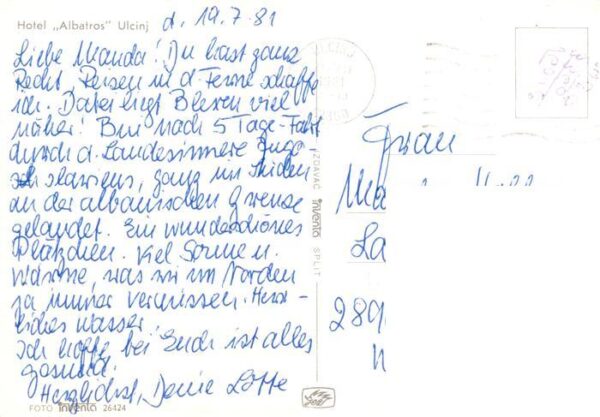 Hotel „Albatros" Ulcinj
d. 19.7.81
Liebe Wanda! Du hast ganz
Recht. Reisen in d. Ferne schaffe
ich. Dabei liegt Bleven viel
näher! Bin nach 5 Tage-Fahrt
durch d. Landesinnere Jugo
slawiens, ganz im Süden
an der albanischen Grenze
gelandet. Ein wunderschönes
Plätzchen. Viel Sonne u.
Wärme, was wir im Norden
ja immer vermissen. Herr-
liches Wasser!
Ich hoffe bei Euch ist alles
gesund.
Herzlichst, Deine Lotte
FOTO inventa 26424
IZDAVAČ inventa SPLIT
Frau
La
289